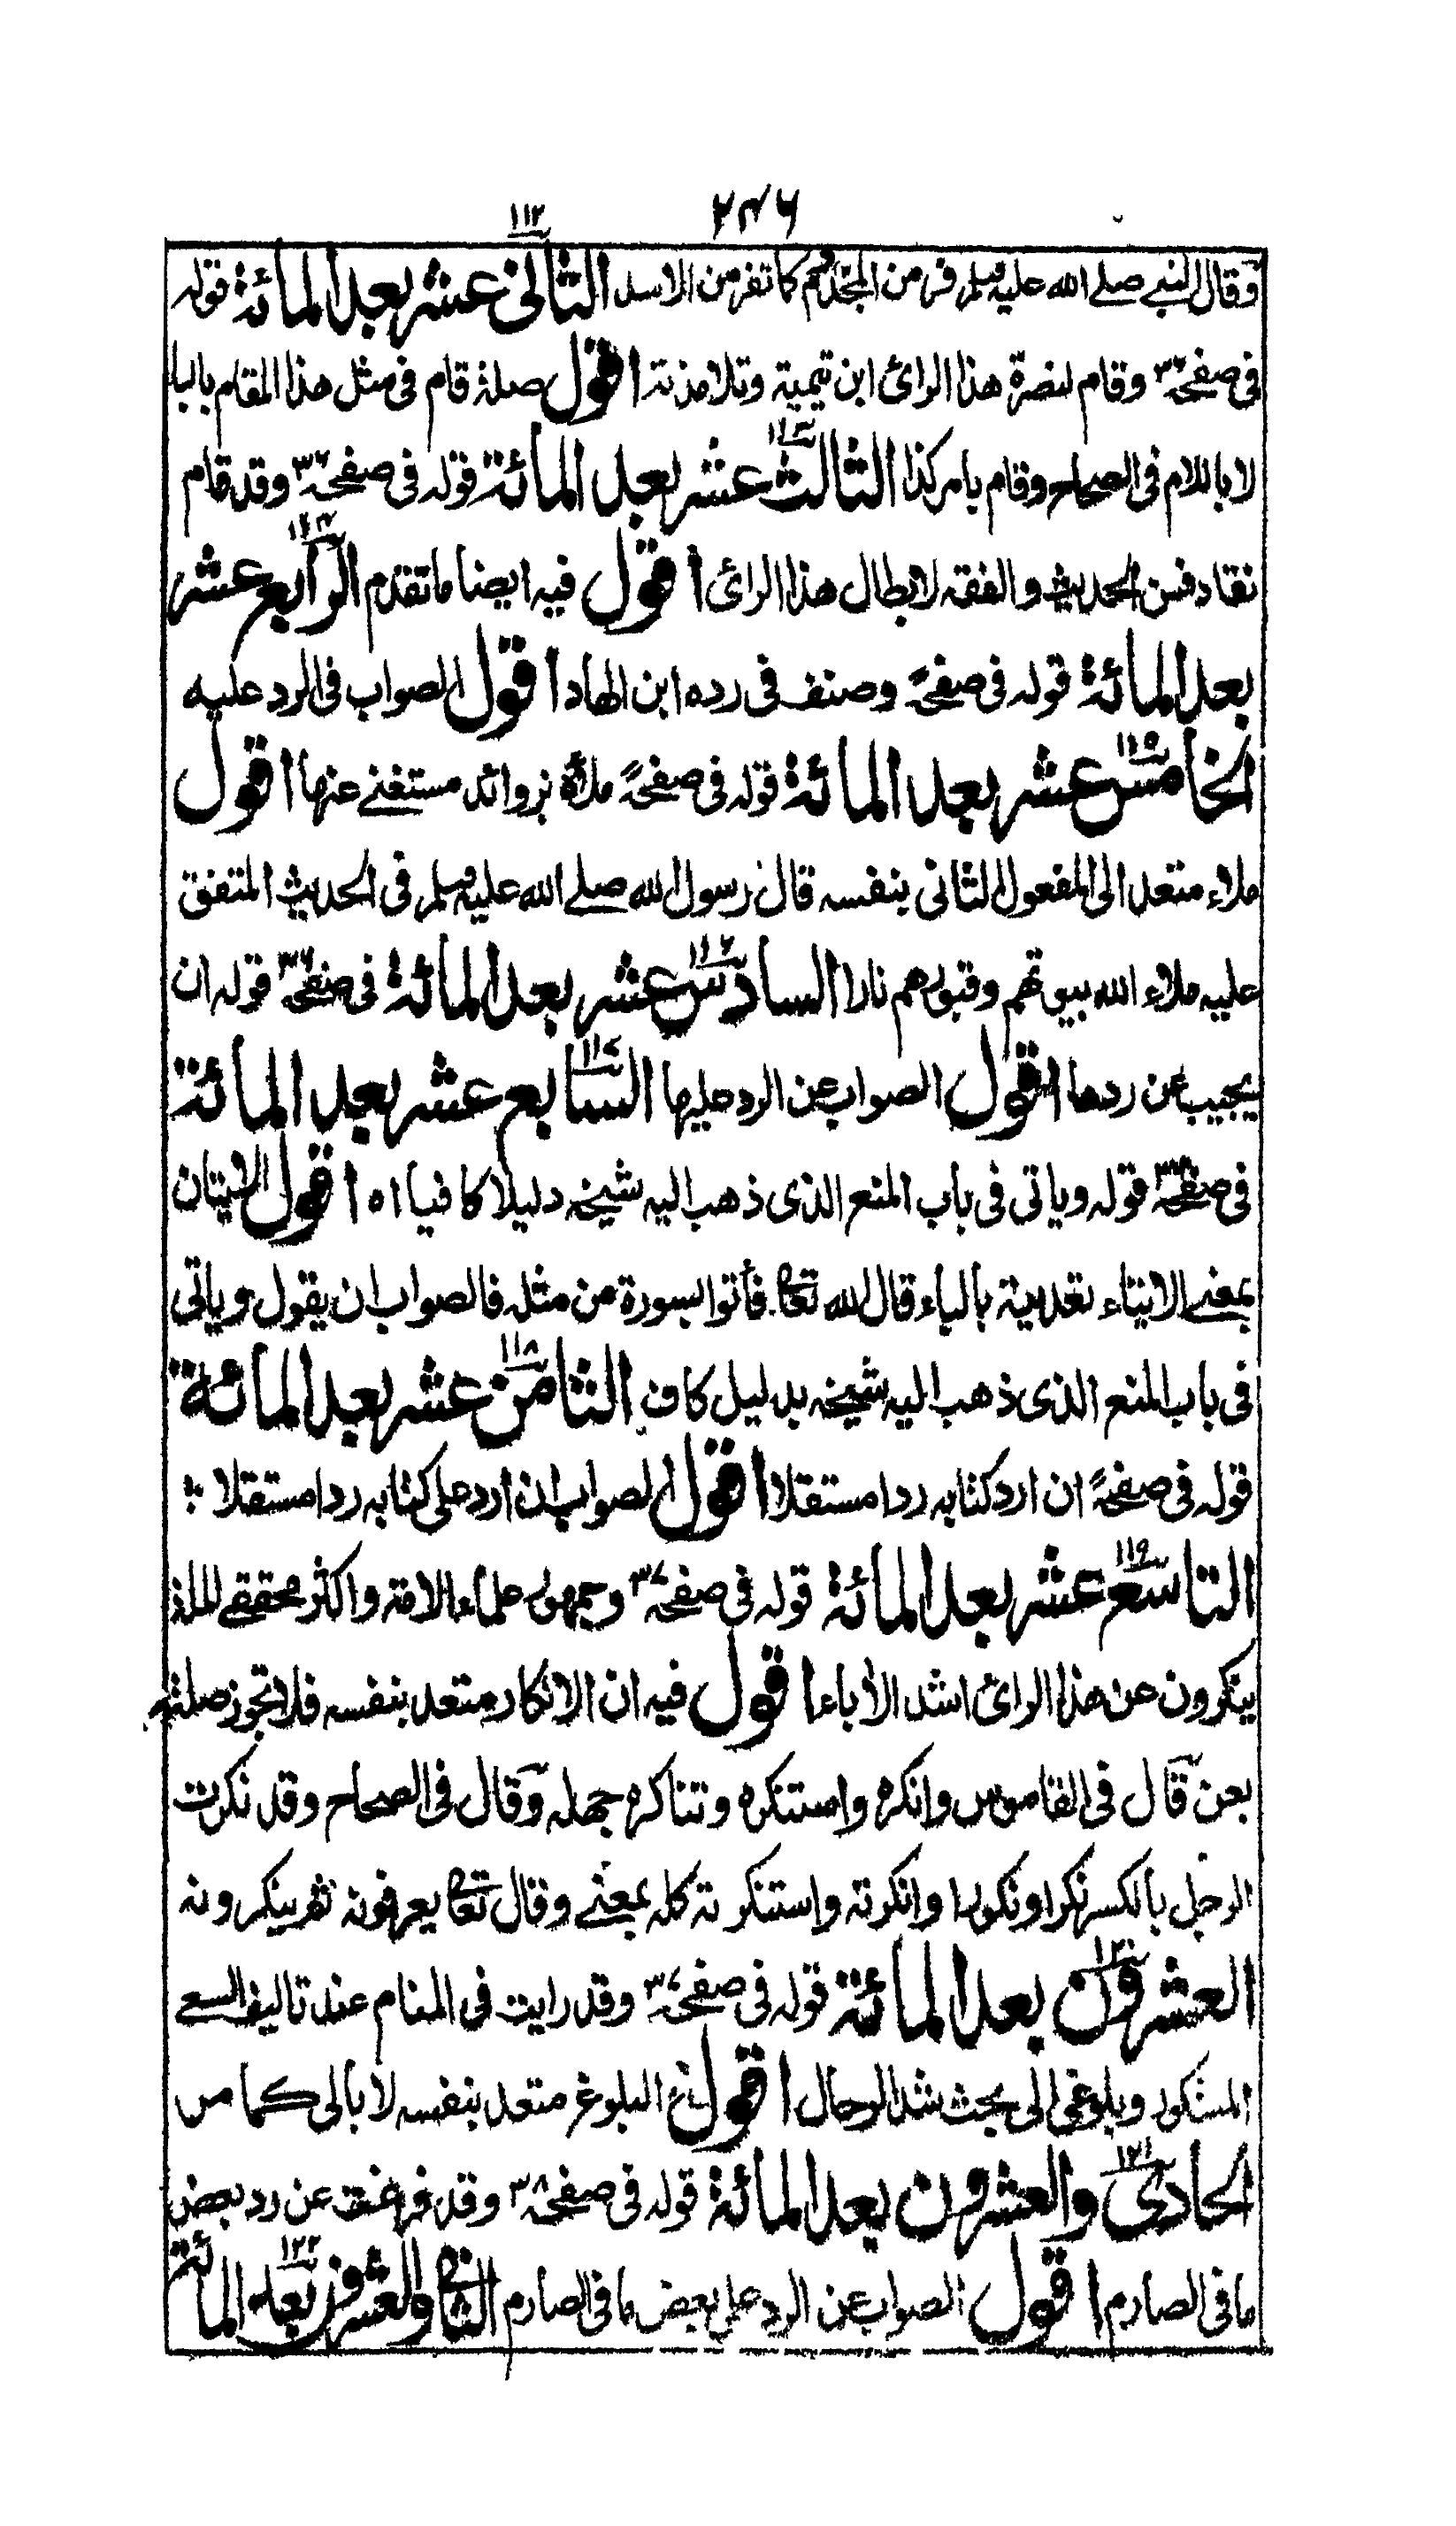 ۲۴۶
وقال النبي صلے الله عليه وسلم فر من المجذوم كما تفر من الاسد الثاني عشر بعد المائة قوله
فى صفحة ۳۶ وقام لنصرة هذا الرائ ابن تيمية وتلامذته اقول صلة قام فى مثل هذا المقام بالباء
لا باللام فى الصحاح وقام بامر كذا الثالث عشر بعد المائة قوله فى صفحة ۳۶ وقد قام
نقاد فن الحديث والفقه لابطال هذا الرائ اقول فيه ايضا ما تقدم الرابع عشر
بعد المائة قوله فى صفحة وصنف فى رده ابن الهاد اقول الصواب فى الرد عليه
الخامس عشر بعد المائة قوله فى صفحة ملأه بزوائد مستغنے عنها اقول
ملاء متعد الى المفعول الثانى بنفسه قال رسول الله صلے الله عليه وسلم فى الحديث المتفق
عليه ملاء الله بيوتهم وقبورهم نارا السادس عشر بعد المائة فى صفحة ۳۶ قوله ان
يجيب عن ردها اقول الصواب عن الرد عليها السابع عشر بعد المائة
فى صفحة قوله وياتى فى باب المنع الذى ذهب اليه شيخه دليلا كافيا اه اقول الاتيان
بمعنے الايتاء تعديته بالباء قال الله تعا. فأتوا بسورة من مثله فالصواب ان يقول وياتى
فى باب المنع الذى ذهب اليه شيخه بدليل كاف الثامن عشر بعد المائة
قوله فى صفحة ان ارد كتابه ردا مستقلا اقول الصواب ان ارد على كتابه ردا مستقلا
التاسع عشر بعد المائة قوله فى صفحة ۳۷ وجمهور علماء الامة واكثر محققے الملة
ينكرون عن هذا الرائ اشد الأباء اقول فيه ان الانكار متعد بنفسه فلا تجوز صلته
بعن قال فى القاموس وانكره واستنكره وتناكره جهله وقال فى الصحاح وقد نكرت
الرجل بالكسر نكرا ونكورا وانكرته واستنكرته كله بمعنے وقال تعا يعرفونه ثم ينكرونه
العشرون بعد المائة قوله فى صفحة ۳۷ وقد رايت فى المنام عند تاليف السعے
المشكور وبلوغى الى بحث شد الرحال اقول البلوغ متعد بنفسه لا بالى كما مر
الحادى والعشرون بعد المائة قوله فى صفحة ۳۸ وقد فرغت عن رد بعض
ما فى الصارم اقول الصواب عن الرد على بعض ما فى الصارم الثانى والعشرون بعد المائة